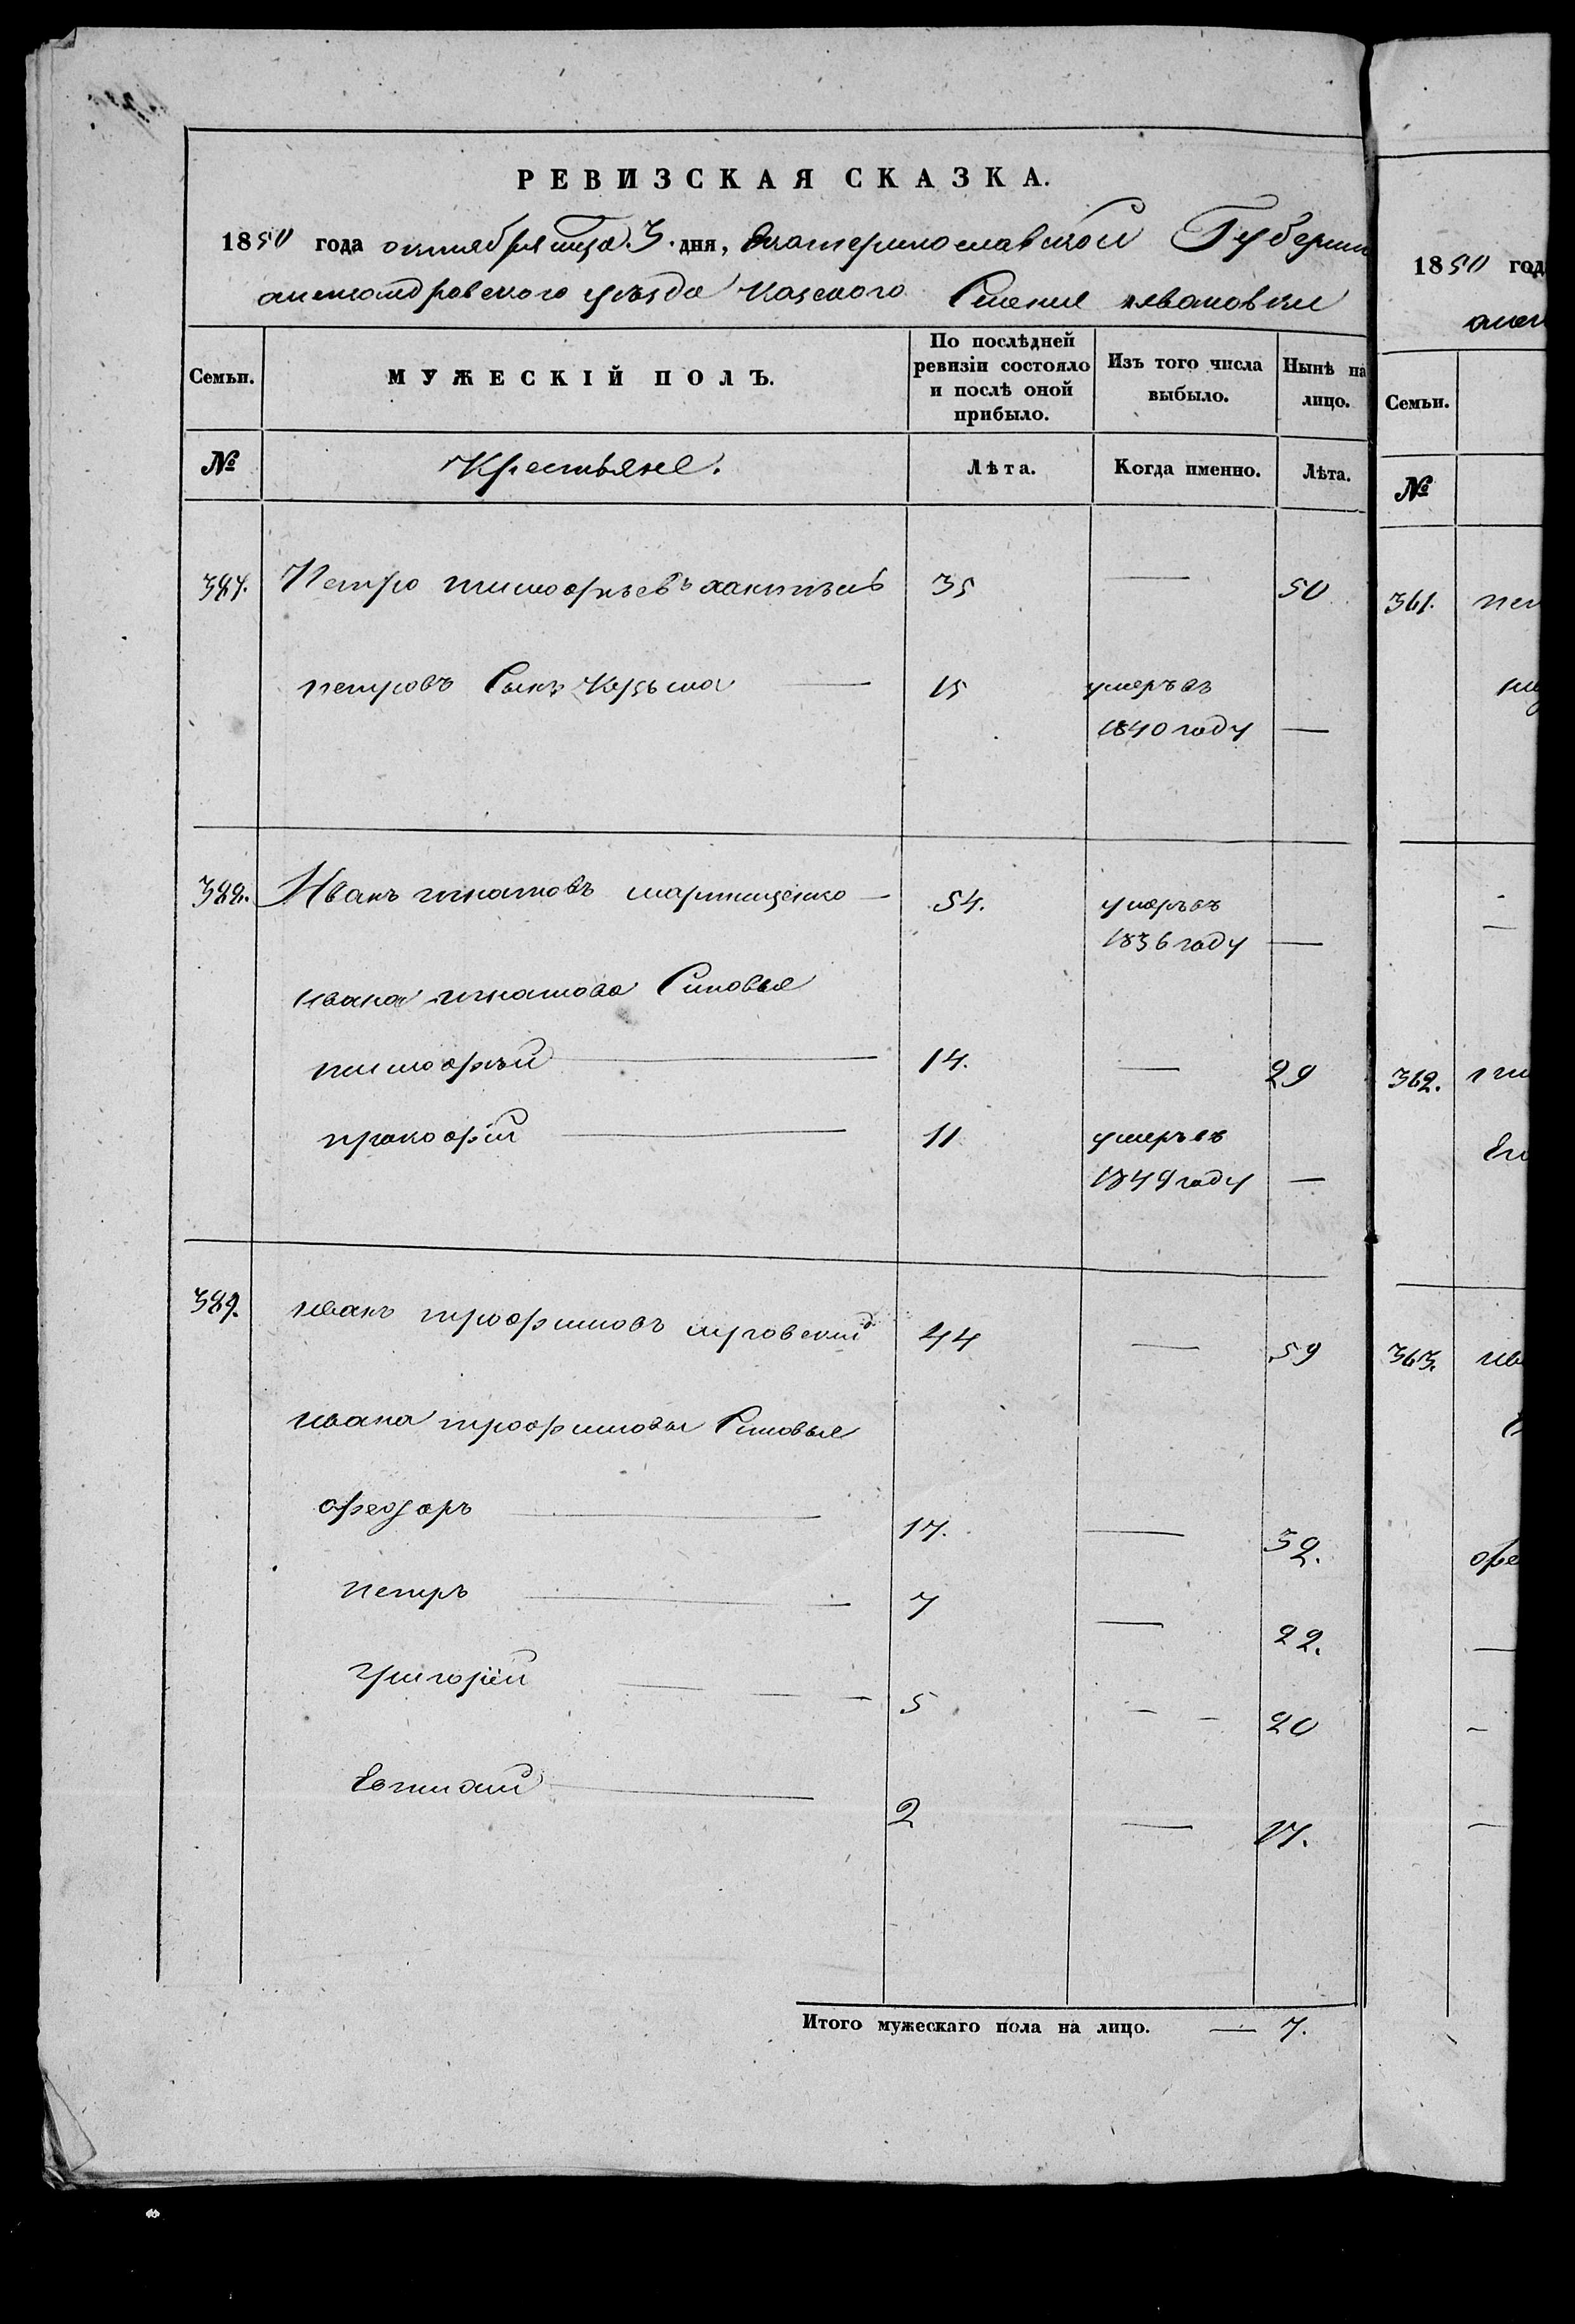 РЕВИЗСКАЯ СКАЗКА.
1850 года октября мца 3 дня, Екатеринославской Губерни
александровского уезда казеного Селения ивановки
Семьи. МУЖЕСКІЙ ПОЛЪ. По послѣдней ревизіи состояло и послѣ оной прибыло. Изъ того числа выбыло. Нынѣ на лицо.
№ Крестьяне. Лѣта. Когда именно. Лѣта.
Петро тимофѣевъ 35 — 50
петровъ Сынъ Кузьма — 15 умеръ въ
1840 году —
388. Иванъ игнатовъ мартищенко — 54. умеръ въ
1836 году —
ивана игнатова Синовья
тимофѣй — 14. — 29
прокофій — 11 умеръ въ
1849 году —
389. иванъ трофимовъ 44 — 59
ивана трофимова Синовья
феодоръ — 17. — 32.
петръ — 7 — 22.
Григорій — 5 — 20
Евтихій — 2 — 17.
Итого мужескаго пола на лицо. — 7.
1850 год
алек
Семьи.
№
361. пет
362.
363. ив